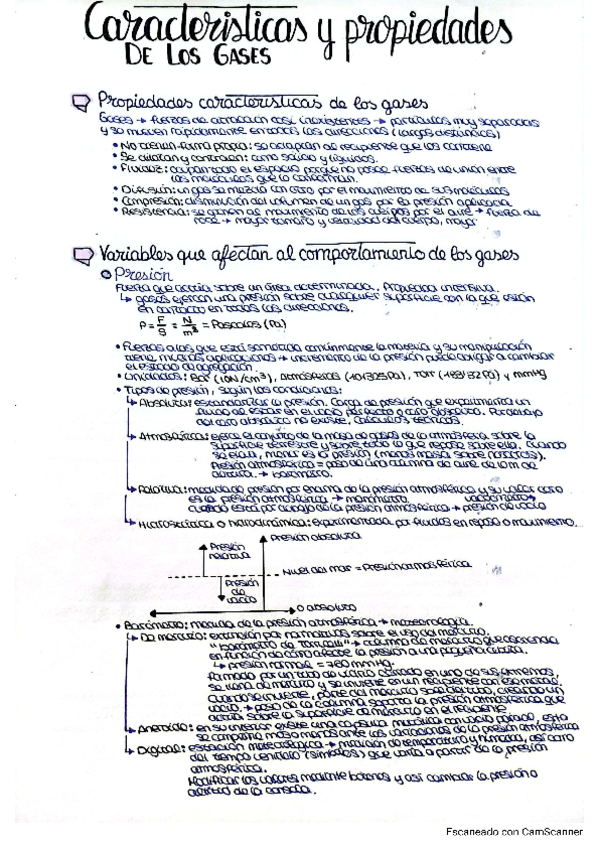 Características y propiedades
DE LOS GASES
Propiedades características de los gases
Gases → fuerzas de atracción casi inexistentes → partículas muy separadas
y se mueven rápidamente en todas las direcciones (largas distancias)
• No tienen forma propia: se adaptan al recipiente que los contiene
• Se dilatan y contraen: como sólido y líquidos.
• Fluidez: ocupan todo el espacio porque no posee fuerzas de unión entre
las moléculas que lo conforman.
• Difusión: un gas se mezcla con otro por el movimiento de sus moléculas
• Compresión: disminución del volumen de un gas por la presión aplicada
• Resistencia: se oponen al movimiento de los cuerpos por el aire → fuerza de
roce → mayor tamaño y velocidad del cuerpo, mayor
Variables que afectan al comportamiento de los gases
Presión
Fuerza que actúa sobre un área determinada. Propiedad intensiva.
↳ gases ejercen una presión sobre cualquier superficie con la que estén
en contacto en todas las direcciones.
P = F/S = N/m³ = Pascales (Pa)
• Fuerzas a las que está sometida continuamente la materia y su manipulación
tiene muchas aplicaciones → incremento de la presión puede obligar a cambiar
el estado de agregación.
• Unidades: Bar (10N/cm²), Atmósferas (101325Pa), Torr (133'32Pa) y mmHg
• Tipos de presión, según las condiciones:
↳ Absoluta: estandarizar la presión. Carga de presión que experimenta un
fluido al estar en el vacío perfecto o cero absoluto. Por debajo
del cero absoluto no existe, cálculos teóricos.
↳ Atmosférica: ejerce el conjunto de la masa de gases de la atmósfera sobre la
superficie terrestre y sobre todo lo que reposa sobre ella. Cuando
se eleva, menor es la presión (menos masa sobre nosotros).
Presión atmosférica = peso de una columna de aire de 10m de
altura. → barómetro.
↳ Relativa: medida de presión por encima de la presión atmosférica y su valor cero
es la presión atmosférica → manómetro vacuómetro
cuando está por debajo de la presión atmosférica → presión de vacío
↳ Hidrostática o hidrodinámica: experimentada por fluidos en reposo o movimiento.
Presión absoluta
Presión relativa
Nivel del mar = Presión atmosférica
Presión de vacío
0 absoluto
• Barómetro: medida de la presión atmosférica → meteorología.
↳ De mercurio: sobre el uso del mercurio.
"barómetro de Torricelli" → columna de mercurio que asciende
en función de cómo afecte la presión a una pequeña cubeta.
↳ presión normal = 760 mmHg.
formado por un tubo de vidrio cerrado en uno de sus extremos
se llena de mercurio y se invierte en un recipiente con el mismo.
Cuando se invierte, parte del mercurio sale del tubo, creando un
vacío. → peso de la columna soporta la presión que
actúa sobre la superficie de mercurio en el recipiente
↳ Aneroide: en su interior existe una cápsula metálica con vacío parcial, esta
se comprime más o menos ante las variaciones de la presión atmosférica
↳ Digital: estación meteorológica → medición de temperatura y humedad, así como
del tiempo venidero (símbolos) que varía a partir de la presión
atmosférica.
Modificar los valores mediante botones y así cambiar la presión o
altitud de la consola.
Escaneado con CamScanner